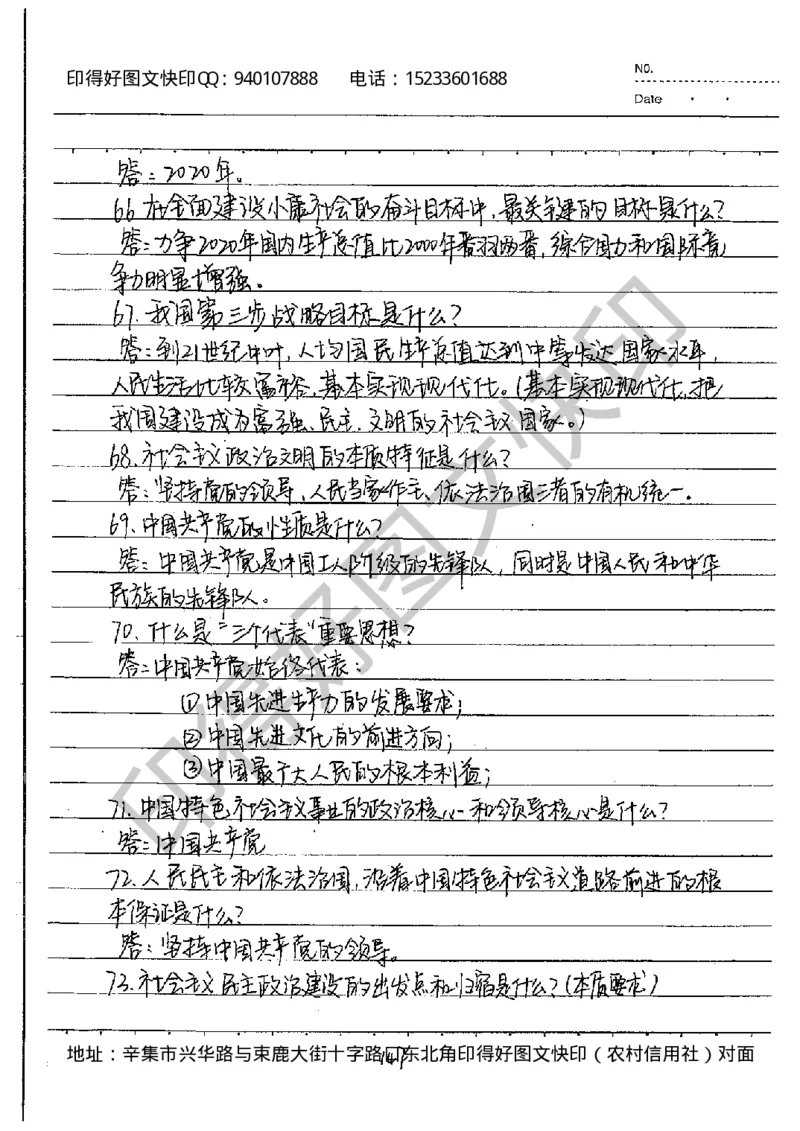 印得好图文快印QQ：940107888 电话：15233601688
NO.
Date
答：2020年。
66.在全面建设小康社会的奋斗目标中，最关键的目标是什么？
答：力争2020年国内生产总值比2000年番两番，综合国力和国际竞
争力明显增强。
67.我国第三步战略目标是什么？
答：到21世纪中叶，人均国民生产总值达到中等发达国家水平，
人民生活比较富裕，基本实现现代化。（基本实现现代化，把
我国建设成为富强、民主、文明的社会主义国家。）
68.社会主义政治文明的本质特征是什么？
答：坚持党的领导，人民当家作主，依法治国三者的有机统一。
69.中国共产党的性质是什么？
答：中国共产党是中国工人阶级的先锋队，同时是中国人民和中华
民族的先锋队。
70.什么是“三个代表”重要思想？
答：中国共产党始终代表：
①中国先进生产力的发展要求；
②中国先进文化的前进方向；
③中国最广大人民的根本利益；
71.中国特色社会主义事业的政治核心和领导核心是什么？
答：中国共产党
72.人民民主和依法治国，沿着中国特色社会主义道路前进的根
本保证是什么？
答：坚持中国共产党的领导。
73.社会主义民主政治建设的出发点和归宿是什么？（本质要求）
地址：辛集市兴华路与束鹿大街十字路口东北角印得好图文快印（农村信用社）对面
印得好图文快印